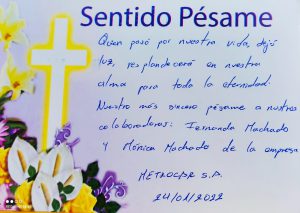 Sentido Pésame
Quien pasó por nuestra vida, dejó
luz, resplandecerá en nuestra
alma para toda la eternidad.
Nuestro más sincero pésame a nuestras
colaboradoras: Fernanda Machado
y Mónica Machado de la empresa
METROCAR S.A.
24/01/2022